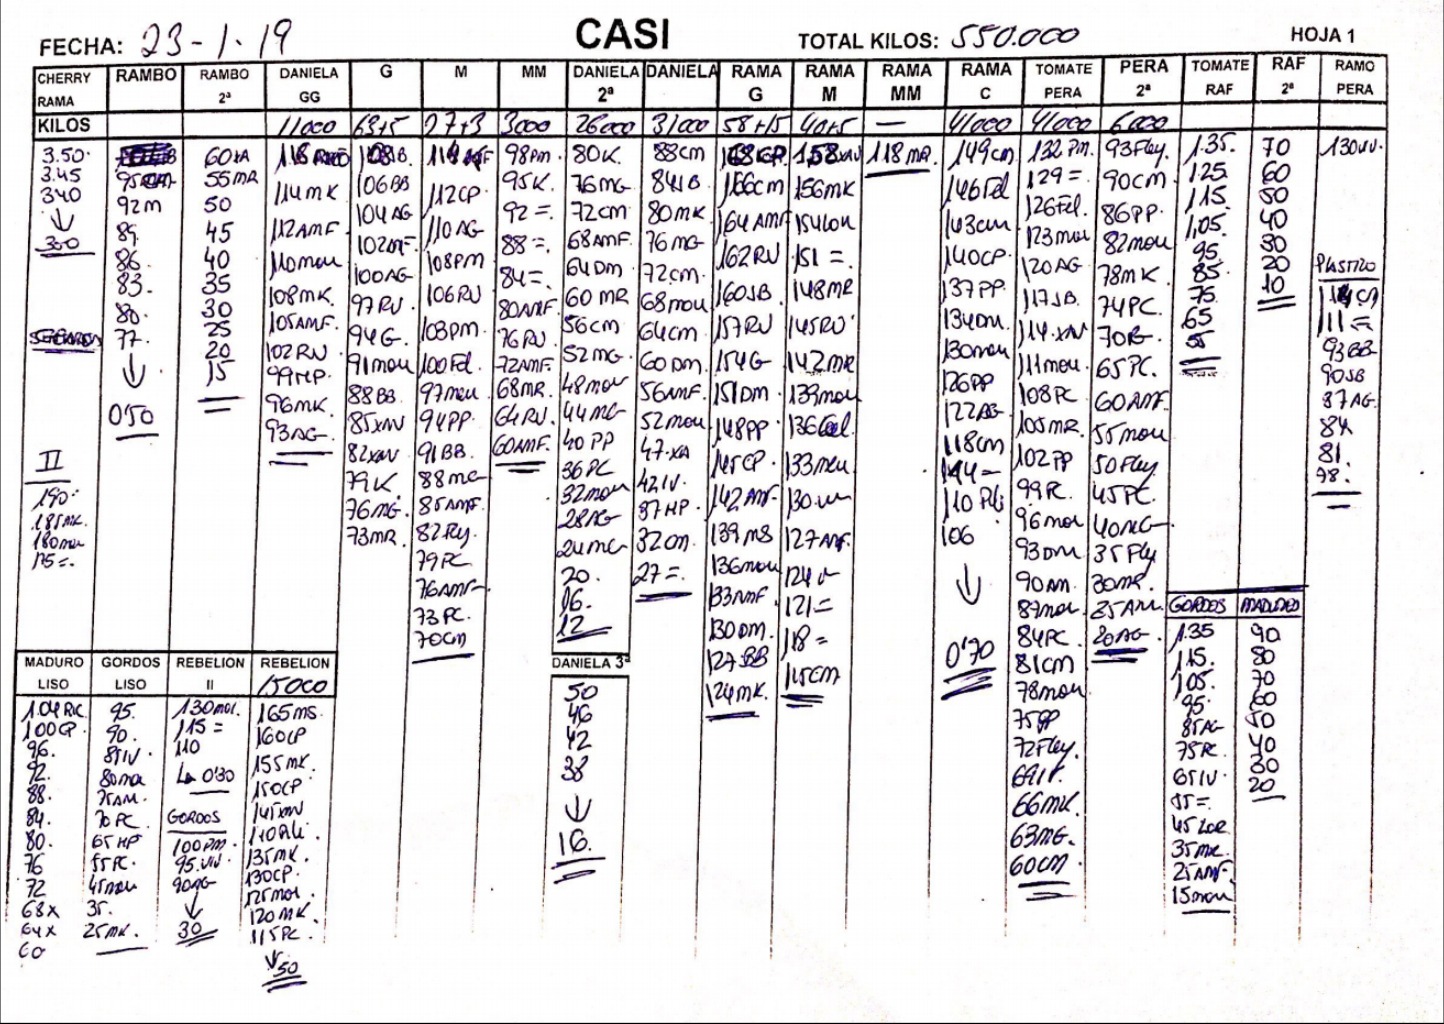 FECHA: 23-1-19 CASI TOTAL KILOS: 550.000 HOJA 1
CHERRY RAMA
KILOS
3.50
3.45
340
↓
300
II
190
185MK
180mou
175=
RAMBO
92m
89
86
83
80
77
↓
0'50
RAMBO 2ª
60XA
55MR
50
45
40
35
30
25
20
15
DANIELA GG
11000
114MK
112AMF
110mou
108MK
105AMF
102RV
99HP
96MK
93AG
G
63+5
106BB
104AG
100AG
97RV
94G
91mou
88BB
85XAV
82XAV
79K
76MG
73MR
M
27+3
112CP
110AG
108PM
106RV
103PM
100Fel
97mou
94PP
91BB
88MG
85AMF
82Fly
79PC
76AMF
73PC
70CM
MM
3000
98PM
95K
92=
88=
84=
80AMF
76RV
72AMF
68MR
64RV
60AMF
DANIELA 2ª
26000
80K
76MG
72CM
68AMF
64DM
60MR
56CM
52MG
48mou
44MG
40PP
36PC
32mou
28AG
24MG
20
16
12
DANIELA 3ª
50
46
42
38
↓
16
DANIELA
31000
88CM
84JB
80MK
76MG
72CM
68mou
64CM
60DM
56AMF
52mou
47XA
42IV
37HP
32CM
27=
RAMA G
58+15
166CM
164AMF
162RV
160JB
157RV
154G
151DM
148PP
145CP
142AMF
139MS
136mou
133AMF
130DM
127BB
124MK
RAMA M
40+5
158XAV
156MK
154Lou
151=
148MR
145RV
142MR
139mou
136Fel
133mou
127AMF
121=
118=
115CM
RAMA MM
—
118MR
RAMA C
41000
149CM
146Fel
143CM
140CP
137PP
134DM
130mou
126PP
122AG
118CM
114=
106
↓
0'70
TOMATE PERA
41000
132PM
129=
126Fel
123mou
120AG
117JB
114XAV
111mou
108PC
105MR
102PP
99PC
96mou
93DM
90AM
87mou
84PC
81CM
78mou
75PP
72Fley
69IV
66MK
63MG
60CM
PERA 2ª
6000
93Fley
90CM
86PP
82mou
78MK
74PC
65PC
60AMF
55mou
50Fley
45PC
40AG
35Fly
30MR
25AM
20AG
TOMATE RAF
1.35
1.25
1.15
1.05
95
85
75
65
55
GORDOS
1.35
1.15
1.05
95
85AG
75PC
65IV
55=
45Lor
35MK
25AMF
15mou
RAF 2ª
70
60
50
40
30
20
10
MADUROS
90
80
70
60
50
40
30
20
RAMO PERA
130VV
PLASTICO
114CM
111=
93BB
90JB
87AG
84
81
78
MADURO LISO
104PC
100CP
96
92
88
84
80
76
72
68X
64X
60
GORDOS LISO
95
90
85IV
80mou
75AM
70PC
65HP
55PC
45mou
35
25MK
REBELION II
130mou
115=
110
0'30
GORDOS
100PM
95
90AG
↓
30
REBELION
15000
165MS
160CP
155MK
150CP
145XAV
135MK
130CP
125mou
120MK
115PC
↓
50